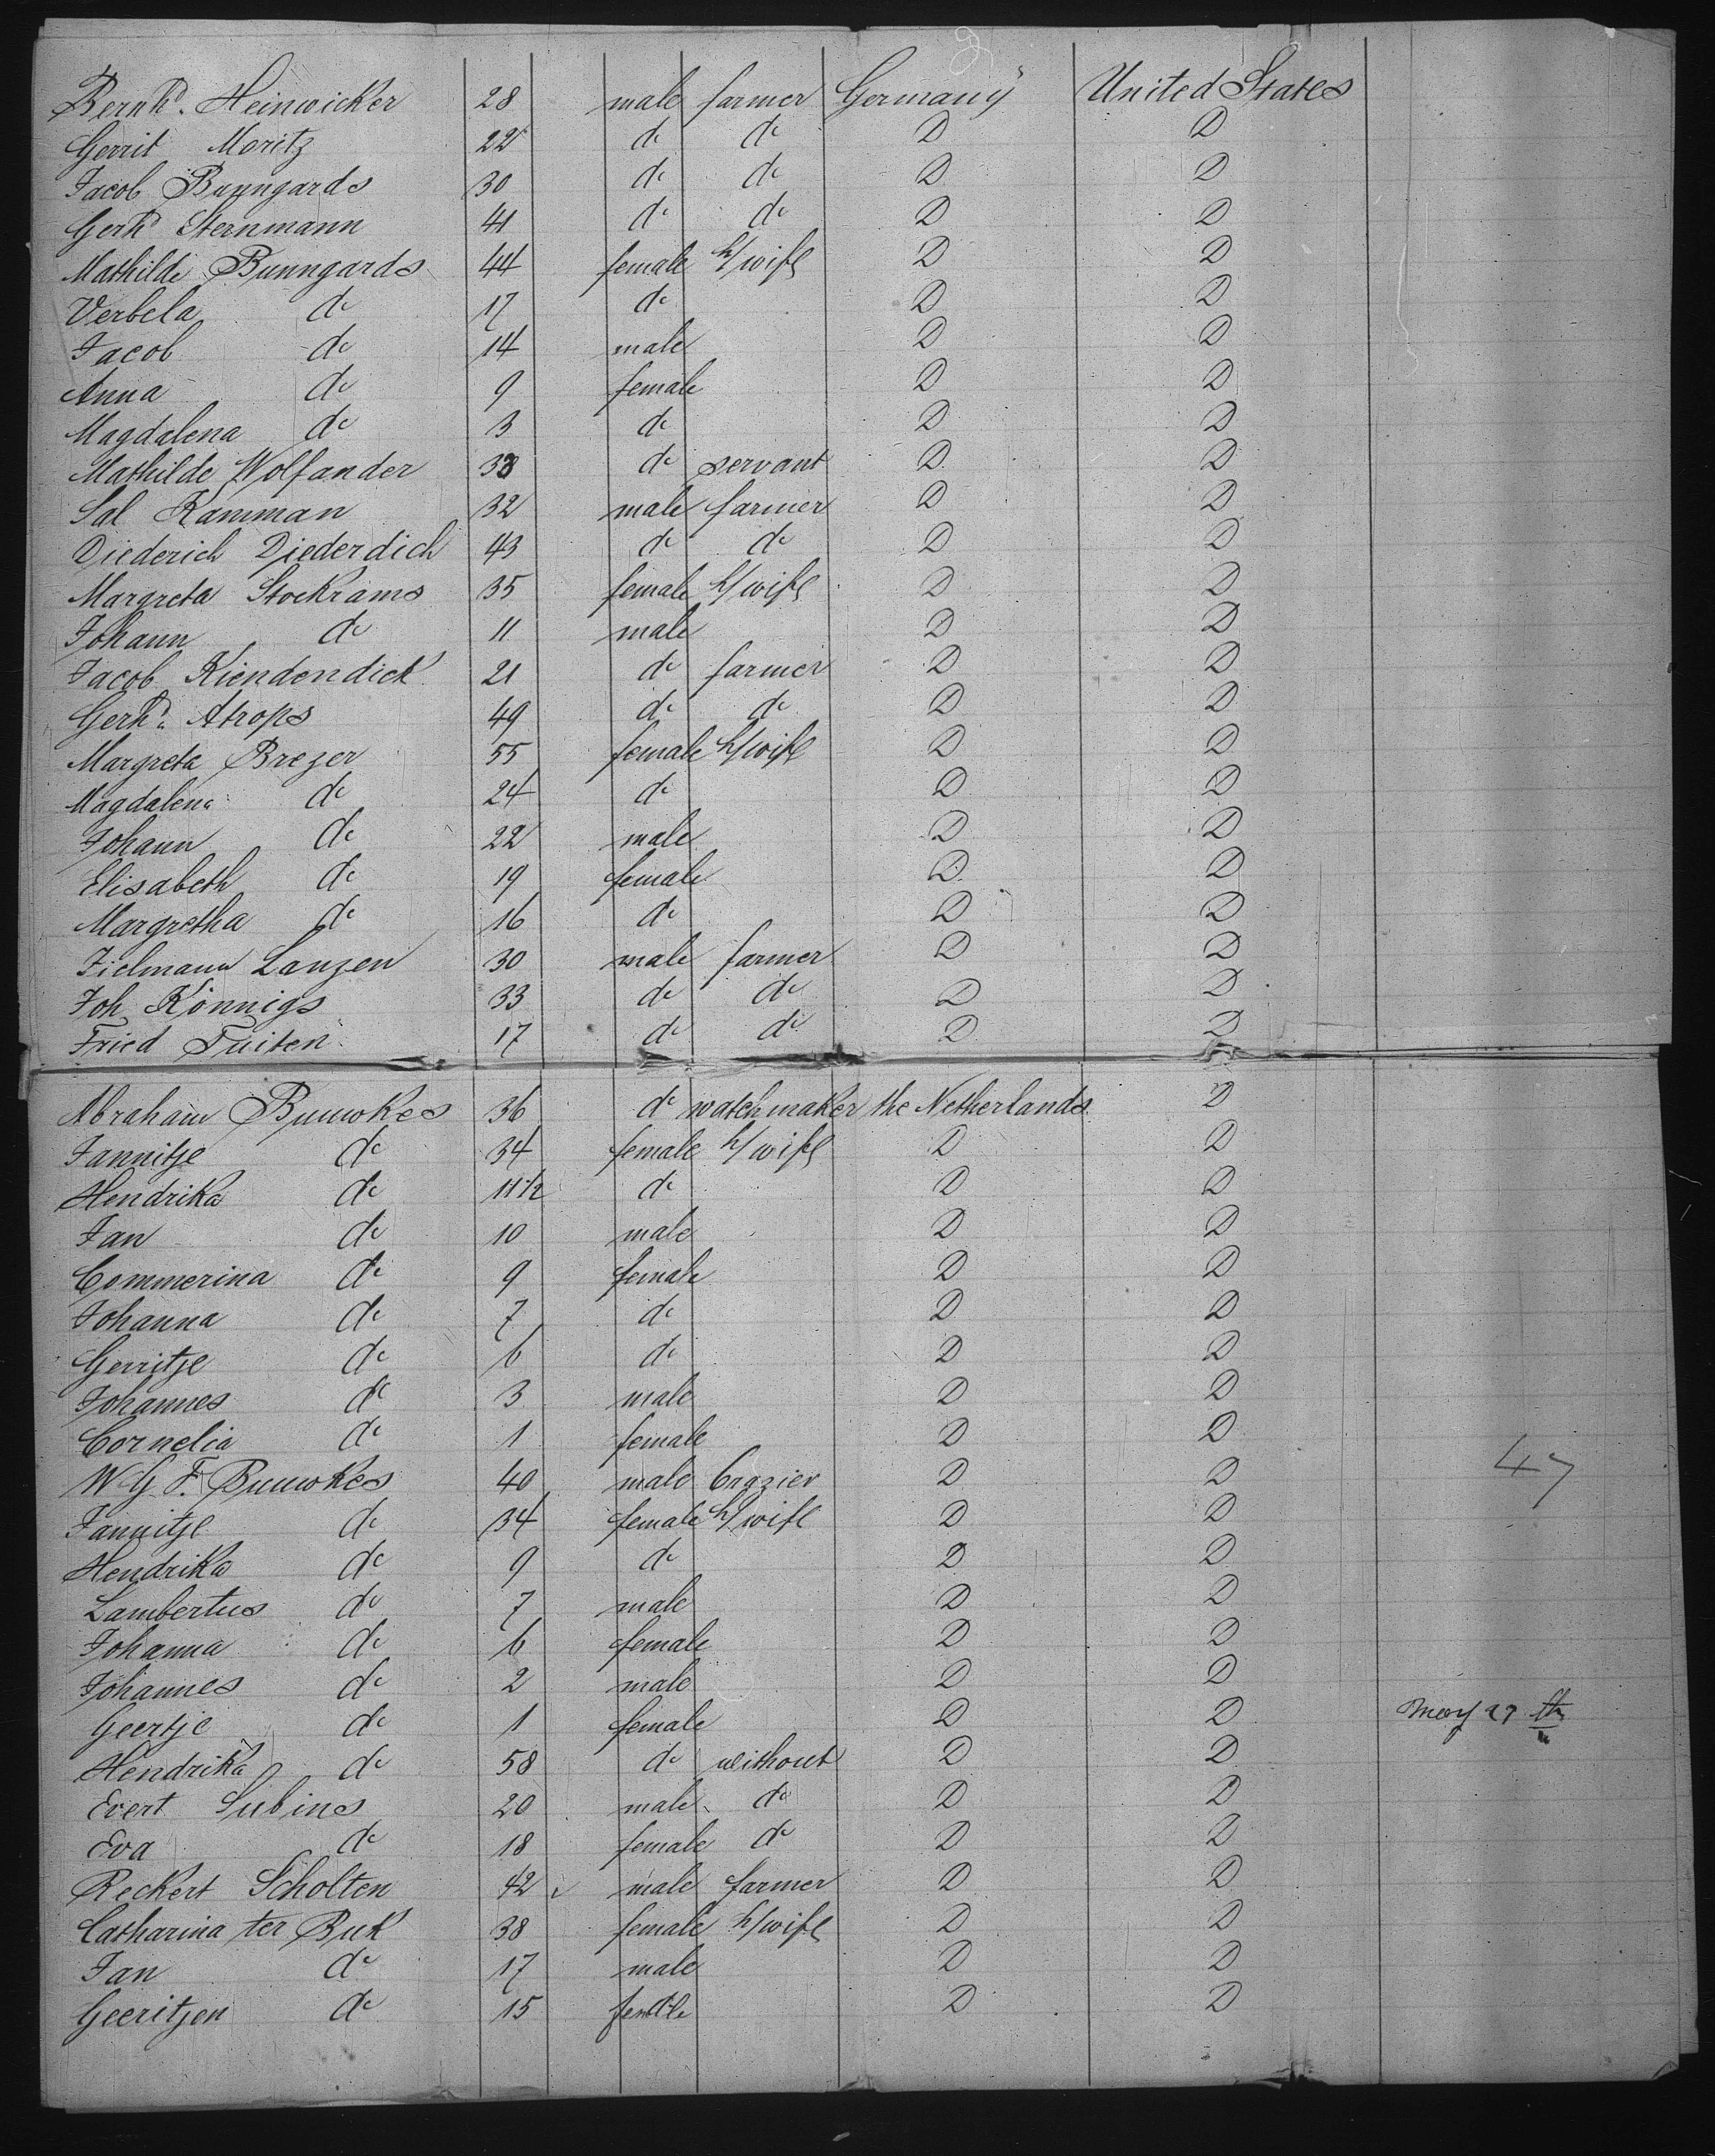 Bernhd. Heinwicker 28 male farmer Germany United States
Gerrit Moritz 22 do do D D
Jacob Buyngards 30 do do D D
Gerhd Sternmann 41 do do D D
Mathilde Bunngards 44 female h/wife D D
Verbela do 17 do D D
Jacob do 14 male D D
Anna do 9 female D D
Magdalena do 3 do D D
Mathilde Wolfander 33 do servant D D
Sal Kamman 32 male farmer D D
Diederich Diederdich 43 do do D D
Margreta Stockrams 35 female h/wife D D
Johann do 11 male D D
Jacob Kiendendick 21 do farmer D D
Gerhd. Atrops 49 do do D D
Margreta Brezer 55 female h/wife D D
Magdalena do 24 do D D
Johann do 22 male D D
Elisabeth do 19 female D D
Margretha do 16 do D D
Tielmann Lanzen 30 male farmer D D
Joh Könnigs 33 do do D D
Fried Tuiten 17 do do D D
Abraham Buuwkes 36 do watchmaker the Netherlands D
Jannitje do 34 female h/wife D D
Hendrika do 11 1/2 do D D
Jan do 10 male D D
Commerina do 9 female D D
Johanna do 7 do D D
Gerritje do 6 do D D
Johannes do 3 male D D
Cornelia do 1 female D D
W G F. Buuwkes 40 male brazier D D 47
Jannitje do 34 female h/wife D D
Hendrika do 9 do D D
Lambertus do 7 male D D
Johanna do 6 female D D
Johannes do 2 male D D
Geertje do 1 female D D May 27 th
Hendrika do 58 do without D D
Evert Lubins 20 male do D D
Eva do 18 female do D D
Reckert Scholten 42 male farmer D D
Catharina ter Buk 38 female h/wife D D
Jan do 17 male D D
Geeritjen do 15 female D D